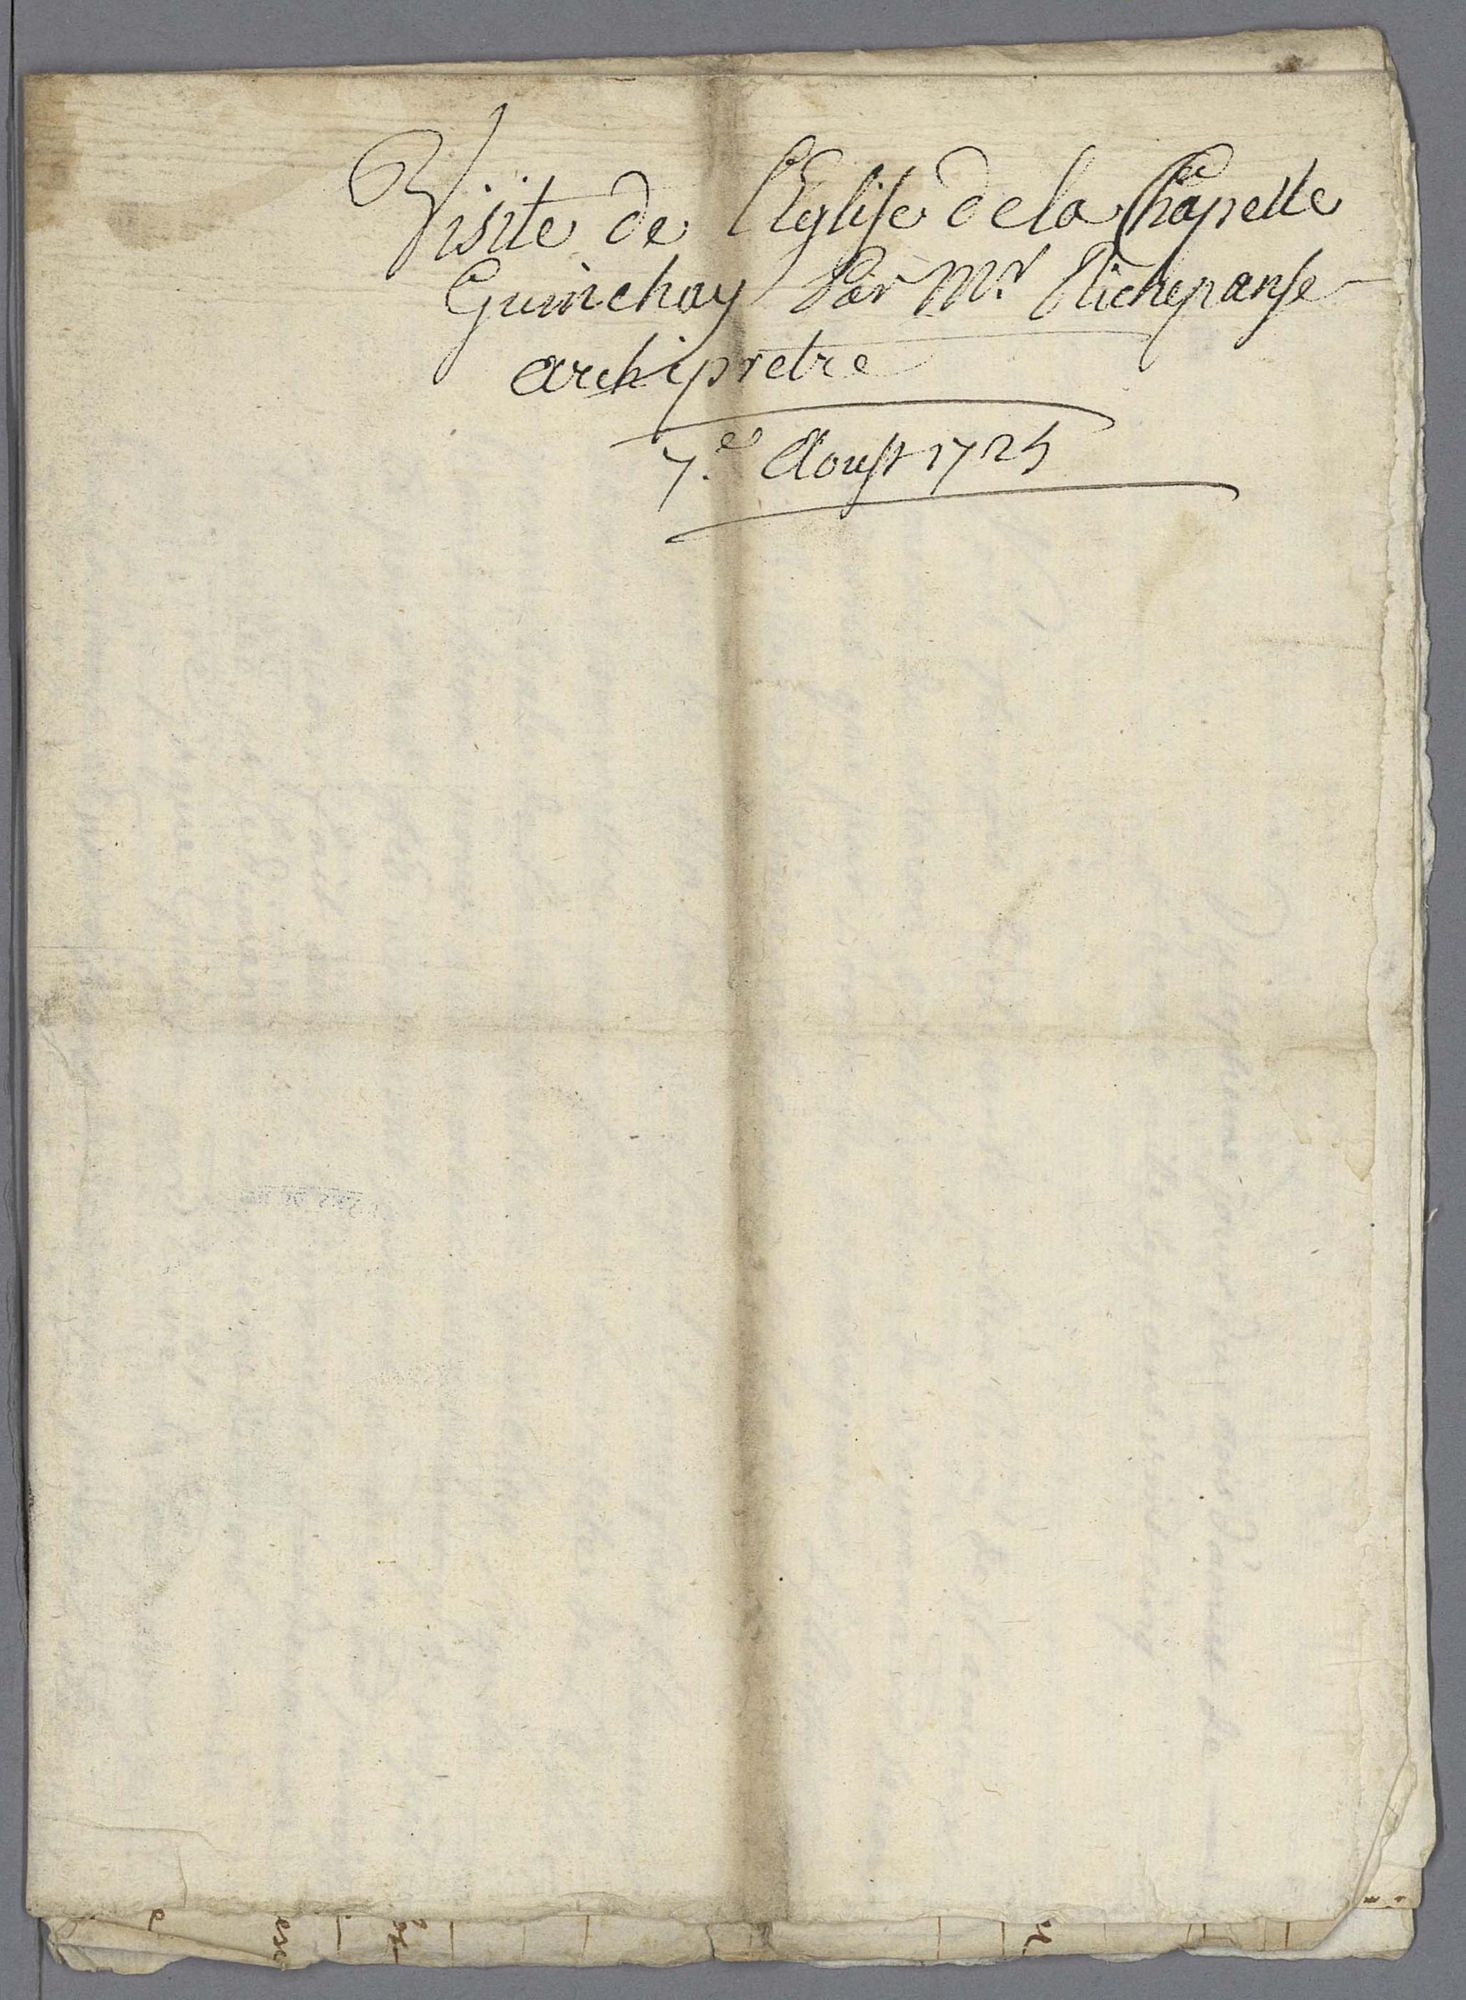 Visite de l'Eglise de la Chapelle
Guinchay Par Mr. Richepanse
archipretre
7.e Aoust 1725